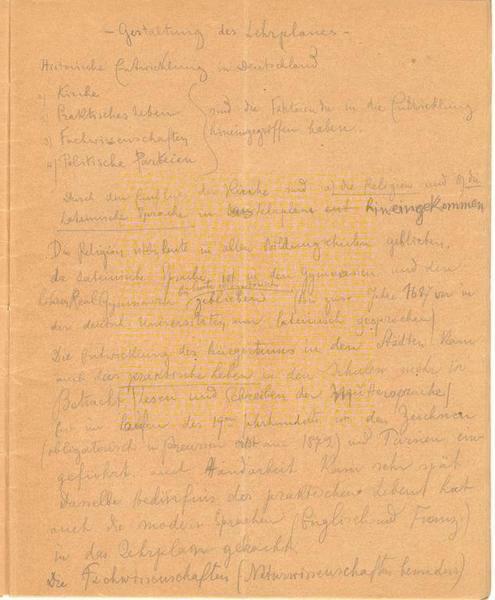 - Gestaltung des Lehrplanes -
Historische Entwicklung in Deutschland
1) Kirche
2) Praktisches Leben
3) Fachwissenschaften
4) Politische Parteien
sind die Faktoren die in die Entwicklung
hineingegriffen haben.
Durch den Einfluss der Kirche sind a) die Religion und b) die
lateinische Sprache in Lehrplane hineingekommen
Die Religion ist heute in allen geblieben,
die lateinische Sprache ist in den Gymnasien und den
Real Gymnasien geblieben (bis zur Jahre 1687 war in
den deutschen Universitäten nur lateinisch gesprochen)
Die Entwicklung des Bürgertums in den Städten kam
auch das praktische Leben in den Schulen mehr in
Betracht (Lesen und Schreiben der Muttersprache)
im Laufen des 19ten Jahrhunderts das Zeichnen
(obligatorisch in Preussen erst 1872) und Turnen ein-
geführt auch Handarbeit kam sehr spät
Dasselbe Bedürfnis des praktischen Lebens hat
auch die modern Sprachen (Englisch und Franz.)
in das Lehrplan gebracht.
Die Fachwissenschaften (Naturwissenschaften besonders)